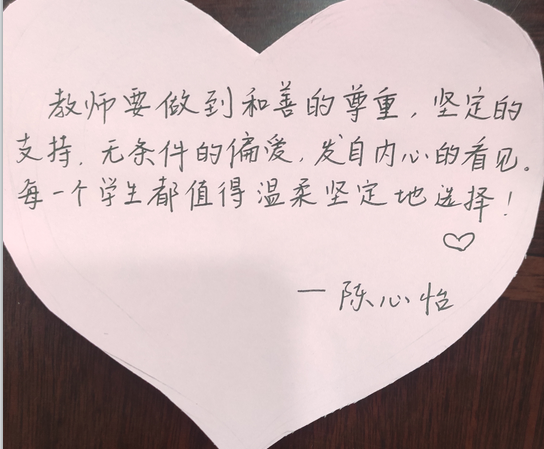 教师要做到和善的尊重，坚定的
支持，无条件的偏爱，发自内心的看见。
每一个学生都值得温柔坚定地选择！
—陈心怡